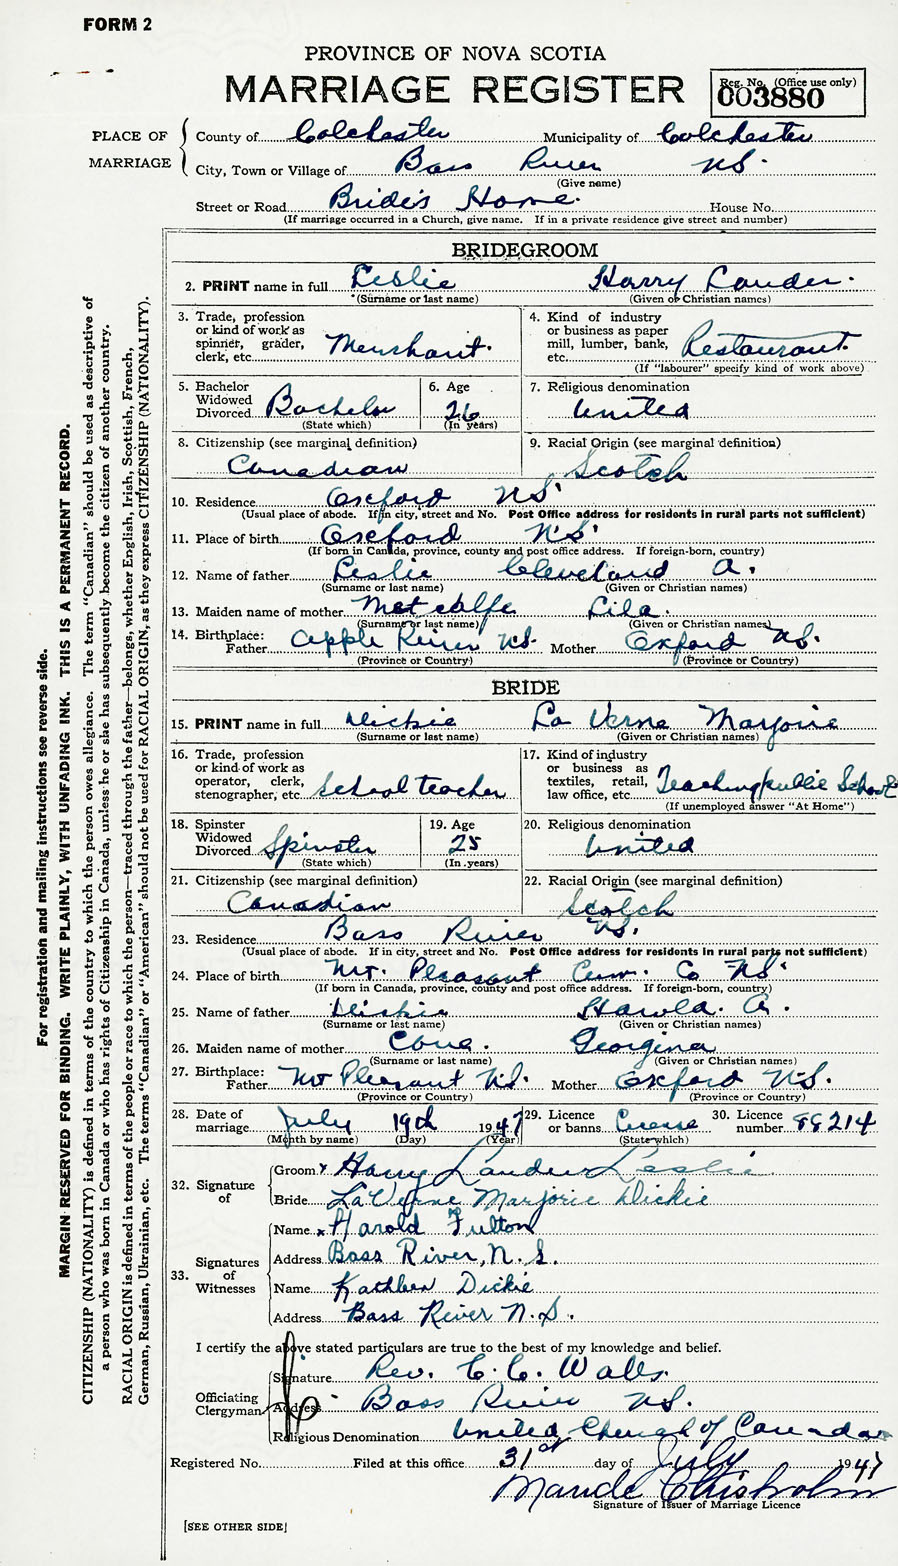 FORM 2
PROVINCE OF NOVA SCOTIA
MARRIAGE REGISTER
Reg. No. (Office use only)
003880
PLACE OF MARRIAGE
County of Colchester Municipality of Colchester
City, Town or Village of Bass River NS.
(Give name)
Street or Road Bride's Home. House No.
(If marriage occurred in a Church, give name. If in a private residence give street and number)
BRIDEGROOM
2. PRINT name in full Leslie Harry Lauder.
(Surname or last name) (Given or Christian names)
3. Trade, profession
or kind of work as
spinner, grader,
clerk, etc. Merchant.
4. Kind of industry
or business as paper
mill, lumber, bank,
etc. Restaurant.
(If "labourer" specify kind of work above)
5. Bachelor
Widowed
Divorced Bachelor
(State which)
6. Age
26
(In years)
7. Religious denomination
United
8. Citizenship (see marginal definition)
Canadian
9. Racial Origin (see marginal definition)
Scotch
10. Residence Oxford NS.
(Usual place of abode. If in city, street and No. Post Office address for residents in rural parts not sufficient)
11. Place of birth Oxford N.S.
(If born in Canada, province, county and post office address. If foreign-born, country)
12. Name of father Leslie Cleveland A.
(Surname or last name) (Given or Christian names)
13. Maiden name of mother Metcalfe Lila.
(Surname or last name) (Given or Christian names)
14. Birthplace:
Father Apple River NS. Mother Oxford NS.
(Province or Country) (Province or Country)
BRIDE
15. PRINT name in full Dickie La Verne Marjorie
(Surname or last name) (Given or Christian names)
16. Trade, profession
or kind of work as
operator, clerk,
stenographer, etc. School teacher
17. Kind of industry
or business as
textiles, retail,
law office, etc. Teaching public School
(If unemployed answer "At Home")
18. Spinster
Widowed
Divorced Spinster
(State which)
19. Age
25
(In years)
20. Religious denomination
United
21. Citizenship (see marginal definition)
Canadian
22. Racial Origin (see marginal definition)
Scotch
23. Residence Bass River NS.
(Usual place of abode. If in city, street and No. Post Office address for residents in rural parts not sufficient)
24. Place of birth Mt. Pleasant Cum. Co NS.
(If born in Canada, province, county and post office address. If foreign-born, country)
25. Name of father Dickie Harold. A.
(Surname or last name) (Given or Christian names)
26. Maiden name of mother Cove. Georgina
(Surname or last name) (Given or Christian names)
27. Birthplace:
Father Mt Pleasant NS. Mother Oxford NS.
(Province or Country) (Province or Country)
28. Date of
marriage July 19th 1947
(Month by name) (Day) (Year)
29. Licence
or banns License
(State which)
30. Licence
number 88214
32. Signature of
Groom x Harry Lauder Leslie
Bride LaVerne Marjorie Dickie
33. Signatures of Witnesses
Name x Harold Fulton
Address Bass River, N.S.
Name Kathleen Dickie
Address Bass River N.S.
I certify the above stated particulars are true to the best of my knowledge and belief.
Officiating Clergyman
Signature Rev. C. C. Walls.
Address Bass River NS.
Religious Denomination United Church of Canada
Registered No. Filed at this office 31st day of July 1947
Maude Chisholm
Signature of Issuer of Marriage Licence
[SEE OTHER SIDE]
For registration and mailing instructions see reverse side.
MARGIN RESERVED FOR BINDING. WRITE PLAINLY, WITH UNFADING INK. THIS IS A PERMANENT RECORD.
CITIZENSHIP (NATIONALITY) is defined in terms of the country to which the person owes allegiance. The term "Canadian" should be used as descriptive of
a person who was born in Canada or who has rights of Citizenship in Canada, unless he or she has subsequently become the citizen of another country.
RACIAL ORIGIN is defined in terms of the people or race to which the person—traced through the father—belongs, whether English, Irish, Scottish, French,
German, Russian, Ukrainian, etc. The terms "Canadian" or "American" should not be used for RACIAL ORIGIN, as they express CITIZENSHIP (NATIONALITY).